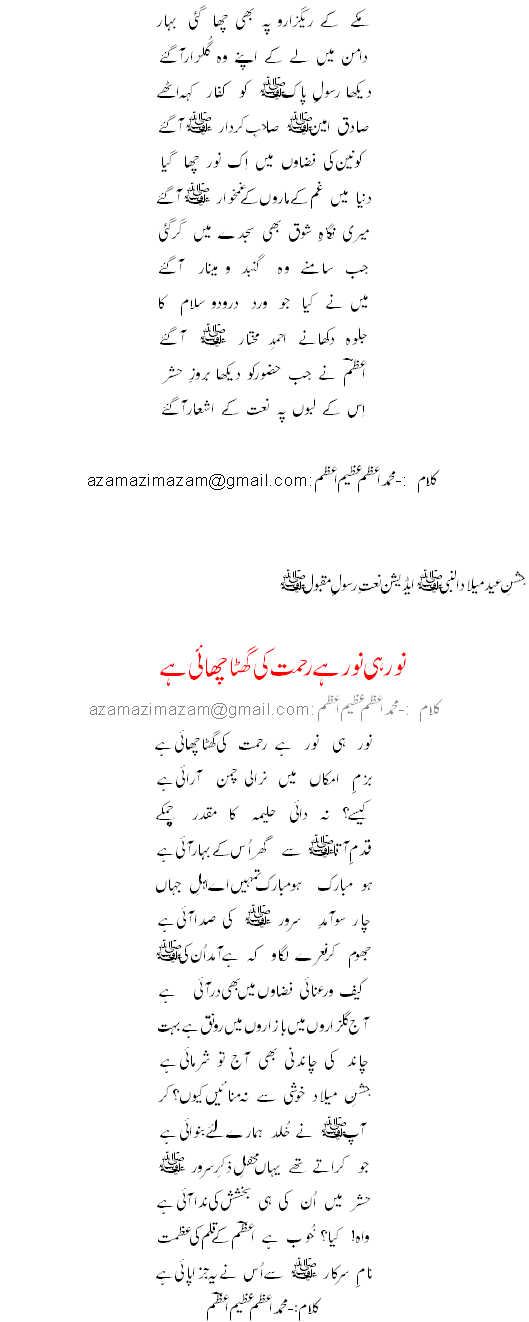 مکے کے ریگزارو پہ بھی چھا گئی بہار
دامن میں لے کے اپنے وہ گُلزار آگئے
دیکھا رسولِ پاک ﷺ کو کفار کہہ اٹھے
صادق امین ﷺ صاحبِ کردار ﷺ آگئے
کونین کی فضاوں میں اِک نور چھا گیا
دنیا میں غم کے ماروں کے غمخوار ﷺ آگئے
میری نگاہِ شوق بھی سجدے میں گر گئی
جب سامنے وہ گنبد و مینار آگئے
میں نے کیا جو ورد درودو سلام کا
جلوہ دکھانے احمدِ مختار ﷺ آگئے
اعظمؔ نے جب حضور کو دیکھا بروزِ حشر
اس کے لبوں پہ نعت کے اشعار آگئے
کلام :- محمد اعظم عظیم اعظم :azamazimazam@gmail.com
جشنِ عید میلاد النبی ﷺ ایڈیشن نعت رسولِ مقبول ﷺ
نور ہی نور ہے رحمت کی گھٹا چھائی ہے
کلام :- محمد اعظم عظیم اعظم :azamazimazam@gmail.com
نور ہی نور ہے رحمت کی گھٹا چھائی ہے
بزمِ امکاں میں نرالی چمن آرائی ہے
کیسے؟ نہ دائی حلیمہ کا مقدر چمکے
قدمِ آقا ﷺ سے گھر اُس کے بہار آئی ہے
ہو مبارک ہو مبارک تمہیں اے اہلِ جہاں
چار سو آمدِ سرور ﷺ کی صدا آئی ہے
جھوم کر نعرے لگاو کہ ہے آمد اُن کی ﷺ
کیف و رعنائی فضاوں میں بھی در آئی ہے
آج گلزاروں میں بازاروں میں رونق ہے بہت
چاند کی چاندنی بھی آج تو شرمائی ہے
جشنِ میلاد خوشی سے نہ منائیں کیوں؟ کر
آپ ﷺ نے خُلد ہمارے لئے بنوائی ہے
جو کراتے تھے یہاں محفلِ ذکرِ سرور ﷺ
حشر میں اُن کی ہی بخشش کی ندا آئی ہے
واہ! کیا؟ خُوب ہے اعظمؔ کے قلم کی عظمت
نامِ سرکار ﷺ سے اُس نے یہ جزا پائی ہے
کلام:- محمد اعظم عظیم اعظمؔ